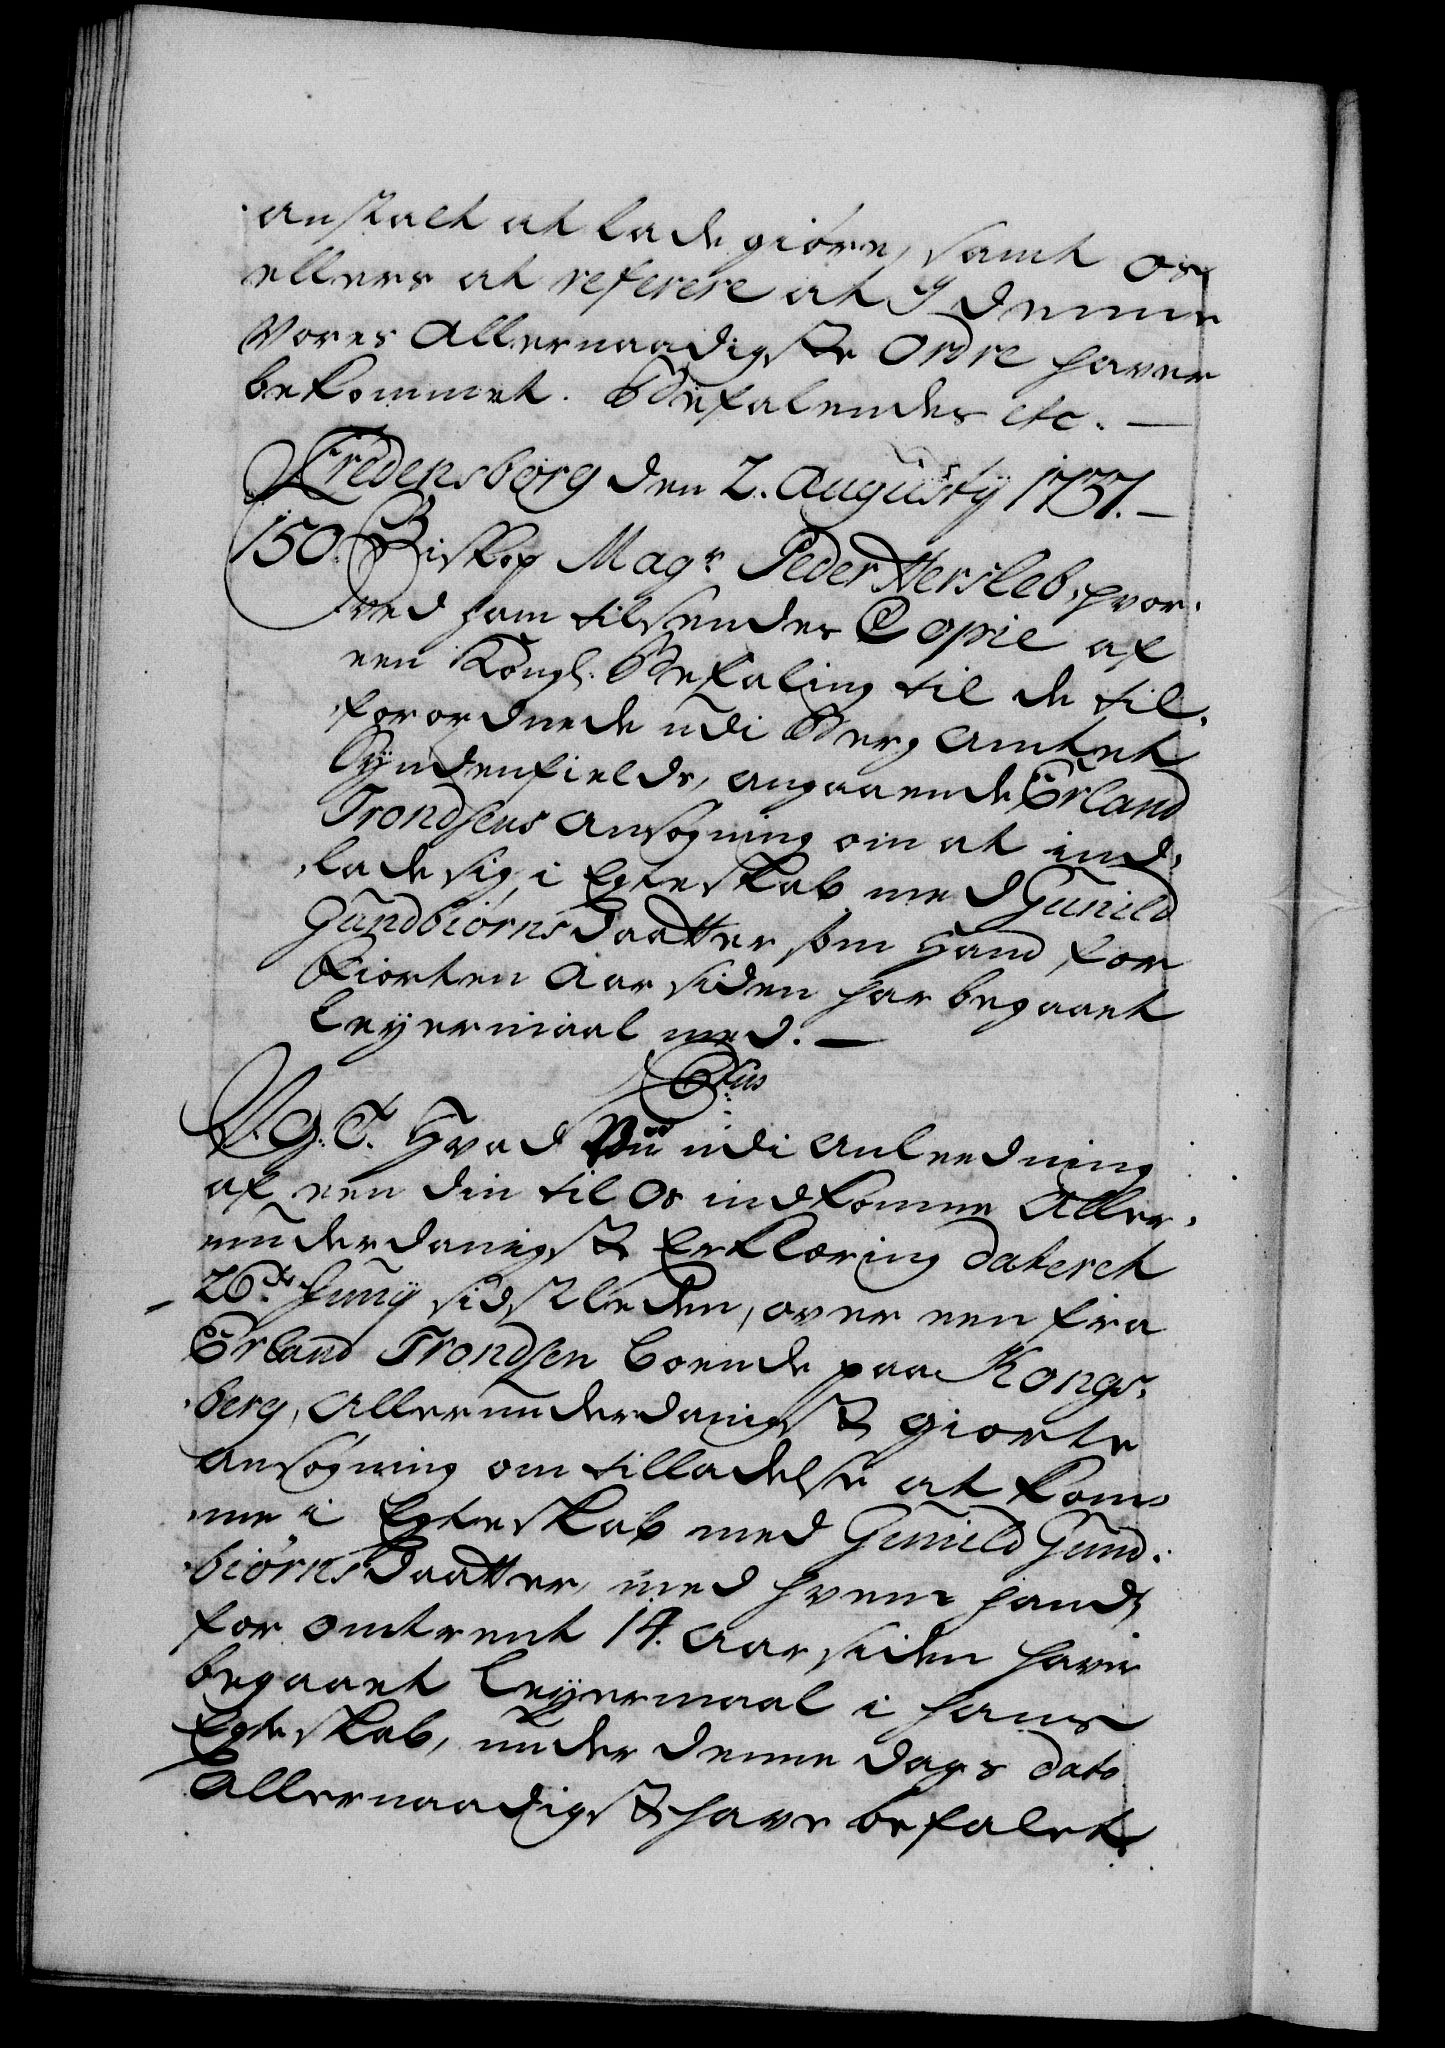 anstalt at lade giøre, samt os
ellers at referere at I denne
Vores Allernaadigste Ordre haver
bekommet. Befalendes etc. —
Fredensborg den 2. Augusty 1731. —
150. Biskop Magr Peder Hersleb, hvor-
ved ham tilsendes Copie af
een Kongl. Befaling til de til-
forordnede udi Berg Amtet
Syndenfields, angaaende Erland
Trondsens Ansøgning om at ind-
lade sig i Egteskab med Gunild
Gundbiørnsdaatter som Hand for
Fiorten Aar siden har begaaet
Leyermaal med. —
C6tus
V. G. T. Hvad Vii udi anleedning
af een din til Os indkomne Aller-
underdanigste Erklæring dateret
26de Juny sidstleden, over een fra
Erland Trondsen boende paa Kongs-
berg, Allerunderdanigst giorte
Ansøgning om tilladelse at kom-
me i Egteskab med Gunild Gund-
biørnsdaatter, med hvem hand
for omtrent 14. Aar siden haver
begaaet Leyermaal i hans
Egteskab, under denne Dags dato
Allernaadigst have befalet